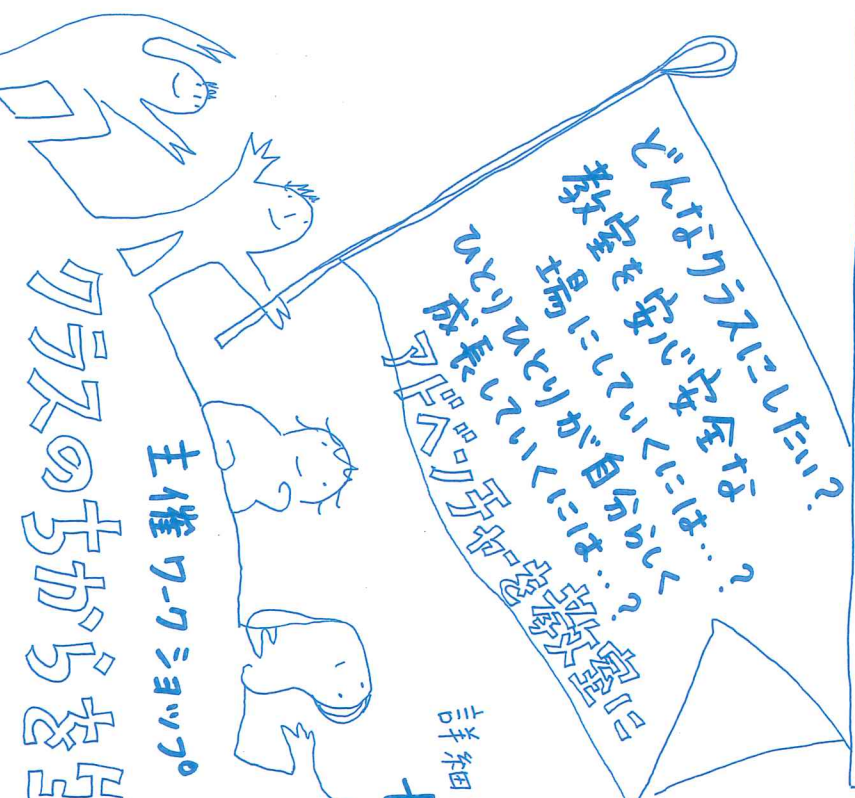 どんなクラスにしたい?
教室を安心安全な
場にしていくには…?
ひとりひとりが自分らしく
成長していくには…?
アドベンチャーを教室に
詳細
主催ワークショップ
クラスのちからを